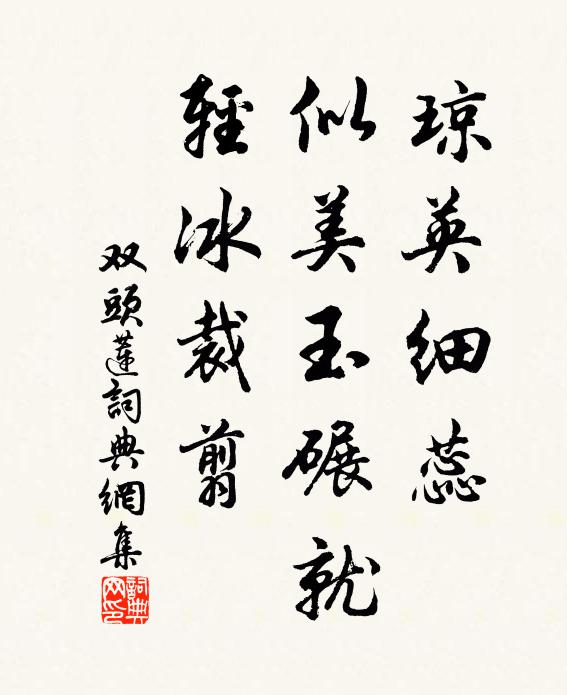 琼英细蕊
似美玉碾就
輕冰裁剪
双頭蓮詞典網集
詞典网印